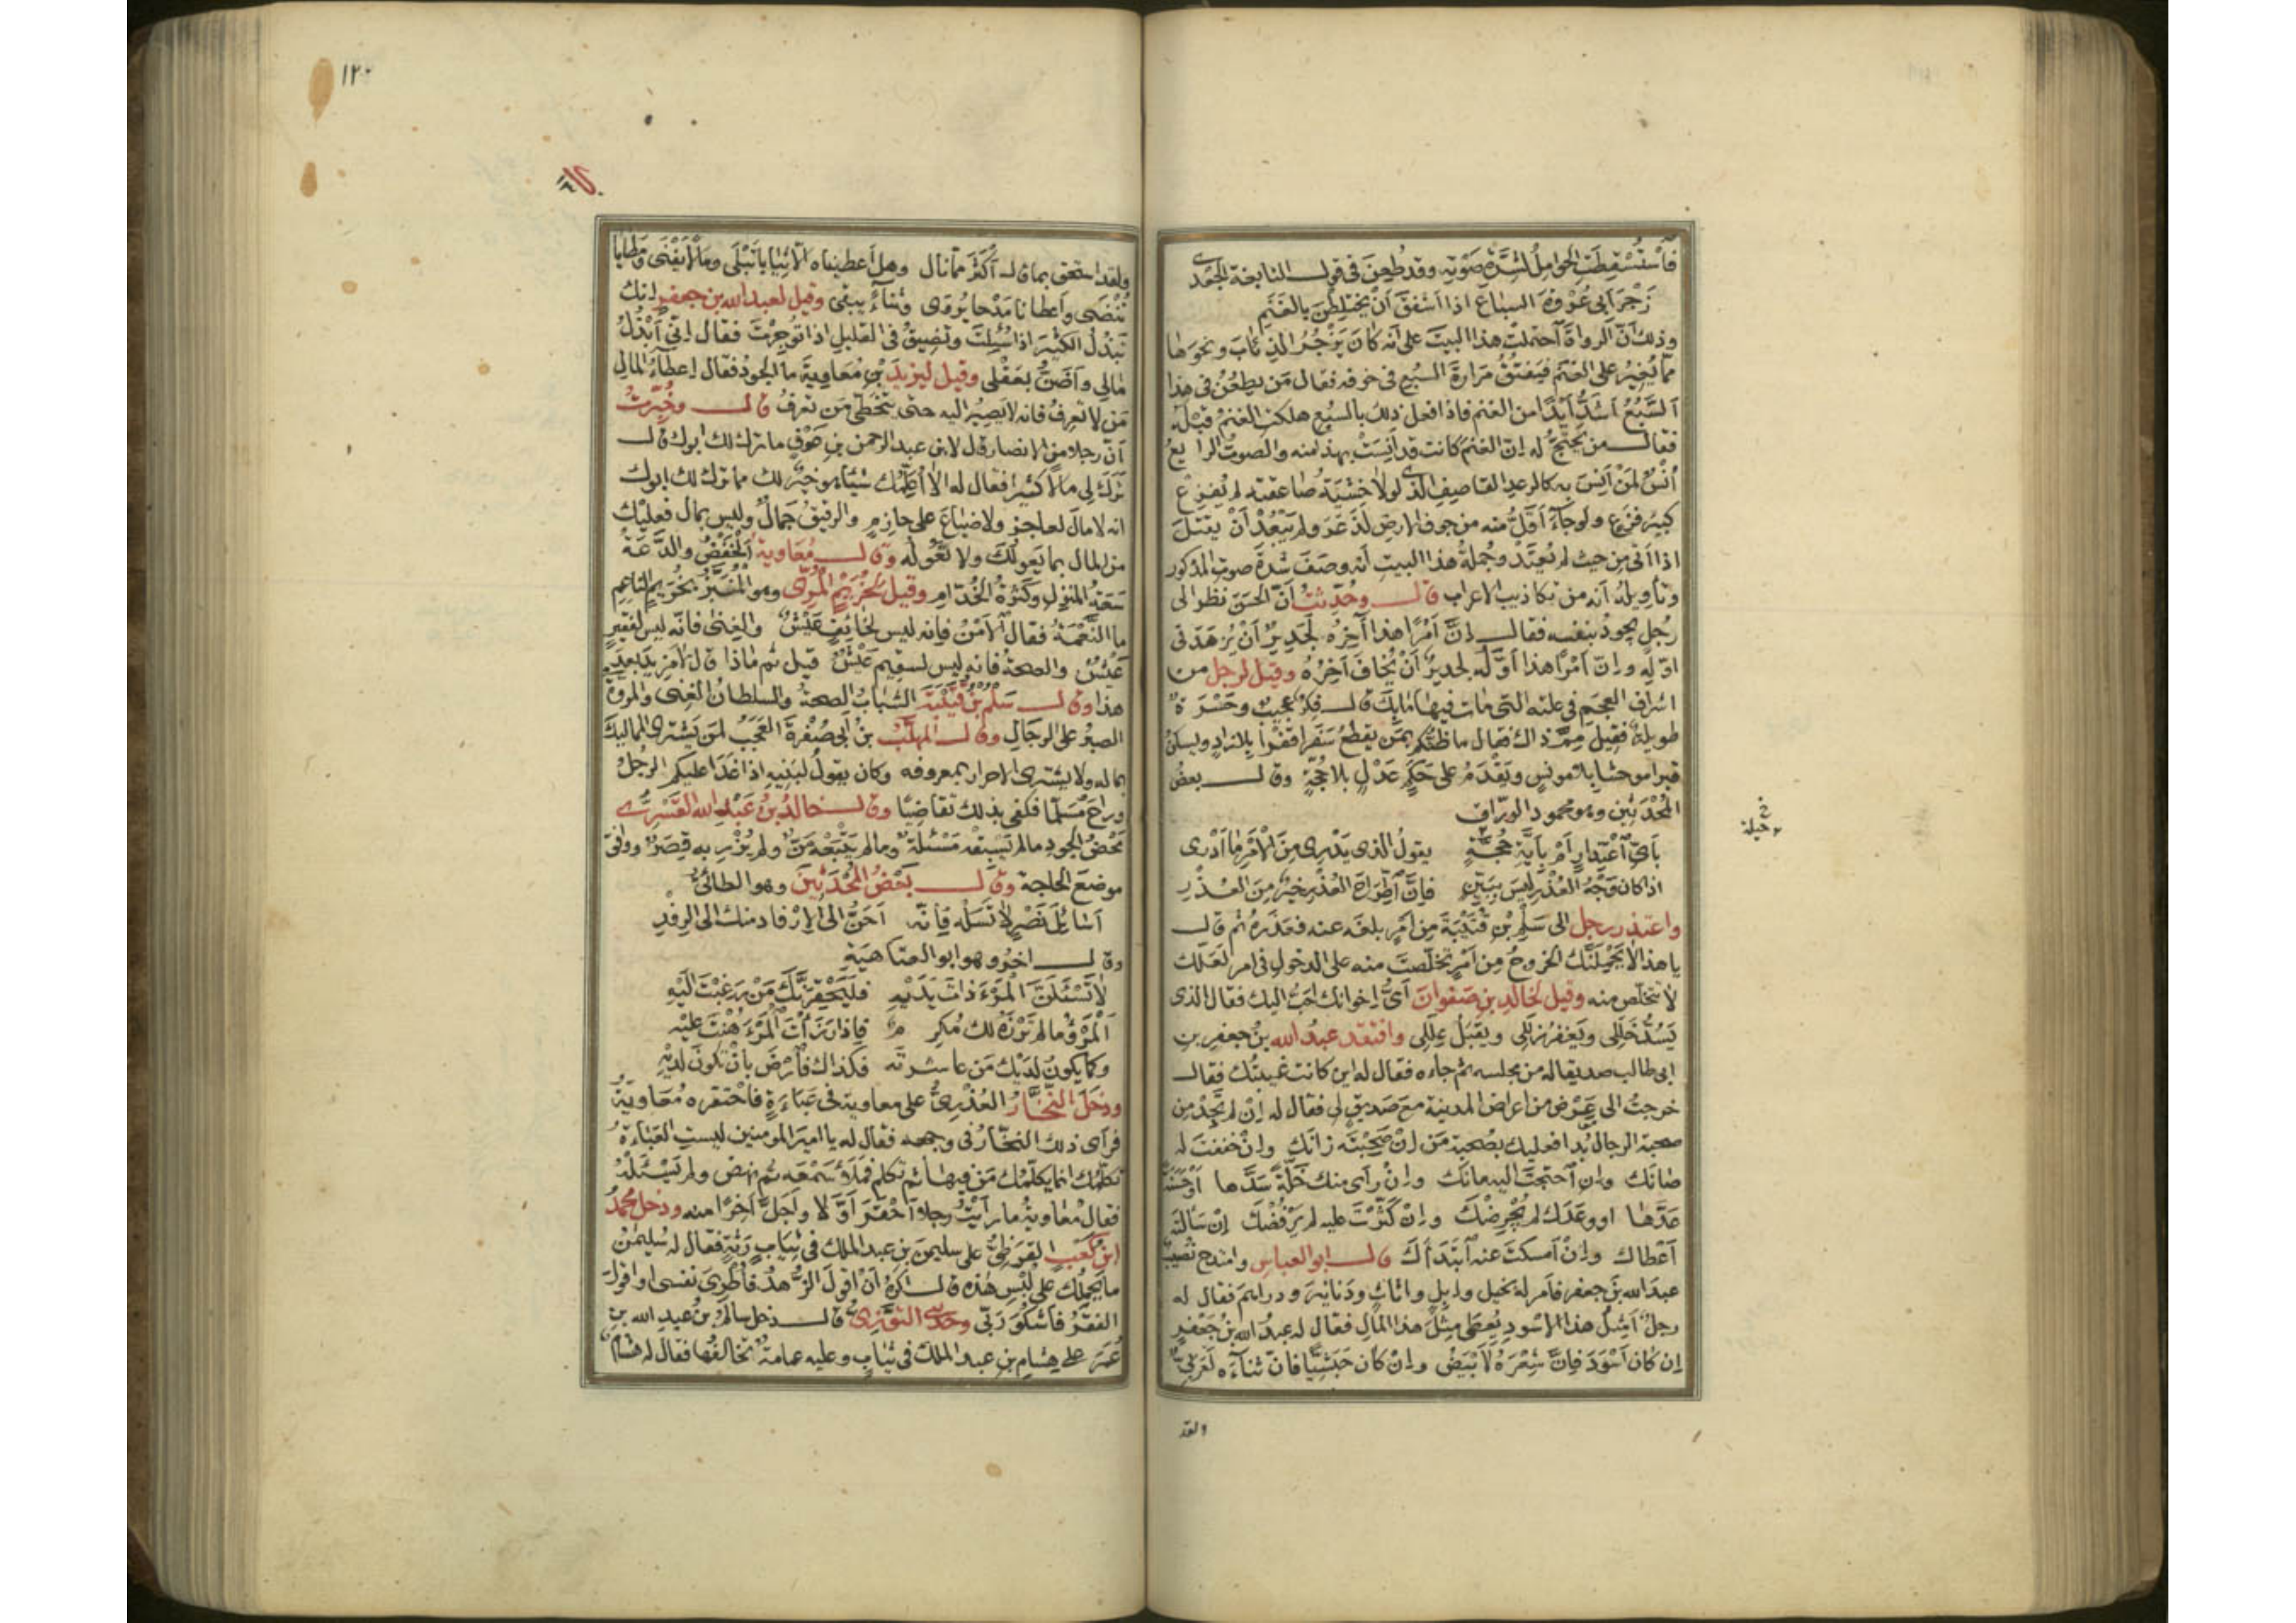 فَاسْتُسْقِطَتِ الحَوَامِلُ لشِدَّةِ صَوْتِه وقد طُعِنَ فى قول النابغة الجَعْدى
زَجْرَ اَبى عُرْوةَ السباعَ اذا اَشفقَ اَنْ يختلِطْنَ بالغَنَمِ
وذلك اَنَّ الرواةَ احتملت هذا البيتَ على اَنه كانَ يَزْجُرُ الذئابَ ونحوَها
مما يُغيرُ على الغنم فيَفتُقُ مَرارةَ السبُع فى جوفه فقال مَن يطعُنُ فى هذا
اَلسَّبُعُ اَشدُّ اَيْدًا من الغنم فاذا فعل ذلك بالسبُع هلكت الغنمُ قبْلَه
فقال من يحتجُّ له اِنّ الغنمَ كانت قد اَنِسَتْ بهذا منه والصوتُ الرايعُ
اُنْسٌ لمَنْ اَنِسَ به كالرعدِ القاصِفِ الذى لولا خشيَةُ صاعقته لم يُفزِع
كبيرَ فزَعٍ ولو جآءَ اَقلُّ منه من جوف الارض لَذَعَرَ ولم يَبْعُدْ اَنْ يقتلَ
اذا اَتى من حيث لم يُعتَدْ وجُملةُ هذا البيتِ اَنه وصَفَ شدّةَ صوتِ المذكور
وتأويلُه اَنه من تكاذيب الاعراب قال وحُدِّثتُ اَنّ الحسَنَ نظر الى
رجُلٍ يجودُ بنفسه فقال اِنَّ اَمْرًا هذا آخِرُه لَجَديرٌ اَنْ يُزهَدَ فى
اوّلِه واِنّ اَمْرًا هذا اَوّلُه لجديرٌ اَنْ يُخافَ آخِرُه وقيل لرجل من
اشراف العجَم فى علته التى مات فيها ما بِكَ قال فِكرٌ عجيبٌ وحَسْرَةٌ
طويلةٌ فقيل مِمَّ ذاك فقال ما ظنُّكم بمَن يقطعُ سَفَرا قفْرا بلا زادٍ ويسكنُ
قبرا موحشا بلا مونِسٍ ويَقْدَمُ على حَكَمٍ عَدْلٍ بلا حُجّةٍ وقال بعضُ
المُحْدَثين وهو محمود الورّاق
بِاَىِّ اعْتِذارٍ اَمْ بِاَيّةِ حُجّةٍ يقولُ الذى يَدْرى مِنَ الْاَمْرِ ما اَدْرى
اذا كان وَجْهُ العُذْرِ ليسَ بِبَيِّنٍ فاِنَّ اطِّراحَ العُذْرِ خَيْرٌ مِنَ العُذْرِ
واعتذر رجل الى سَلْمِ بْنِ قُتَيْبَةَ مِن اَمْرٍ بلغه عنه فعذَرَه ثم قال
يا هذا لا يَحْمِلَنَّك الخروجُ مِن اَمْرٍ تخلّصتَ منه على الدخول فى امر لعَلّك
لا تتخلّص منه وقيل لخالدِ بن صَفوانَ اَىُّ اخوانك احَبُّ اليك فقال الذى
يَسُدُّ خَلَلِى ويَغفِرُ زلَلى ويقبَلُ عِلَلِى وافتقد عبدُ الله بنُ جعفرِ بنِ
ابى طالب صديقا له من مجلسه ثم جاءه فقال له اين كانت غيبتُك فقال
خرجتُ الى عِرْضٍ من اعراض المدينة مع صديقٍ لى فقال له اِنْ لم تَجِدْ مِن
صحبة الرجال بُدا فعليك بصُحبة مَن اِنْ صَحِبْتَه زانَك واِنْ خففتَ له
صانَك واِنِ احتجتَ اليه مانَك واِنْ رآى منك خَلّةً سَدّها اَوْ حسَنةً
عَدَّها او وعَدَك لم يُجْرِضْكَ واِنْ كَثّرتَ عليه لم يَرْفُضْكَ اِنْ سَالتَه
اَعْطاك واِنْ اَمسكتَ عنه ابْتَدَاَكَ قال ابو العباسِ وامتدح نُصَيبٌ
عبدَ الله بنَ جعفر فاَمر له بخيلٍ واِبِلٍ واثاثٍ ودَنانيرَ ودراهم فقال له
رجلٌ اَمِثْلُ هذا الاسْودِ يُعطَى مِثْلَ هذا المالِ فقال له عبدُ الله بن جَعْفرٍ
اِن كانَ اَسْوَدَ فاِنَّ شِعْرَهُ لَاَبْيَضُ واِنْ كان حَبَشِيّا فانّ ثناءَه لَعَربىٌّ
ولقد
١٢٠
ولقد استحق بما قال اَكثَرَ مما نال وهل اَعطيناه الّا ثيابا تَبْلَى ومالًا يَفْنَى ومَطايا
تُنْضَى واَعطانا مَدْحا يُروَى وثناءً يبقى وقيل لعبد الله بن جعفرٍ اِنك
تَبْذُلُ الكثيرَ اذا سُئِلتَ وتُضيقُ فى القليل اذا تُوجِرْتَ فقال اِنّى اَبْذُلُ
مالى واَضَنُّ بعَقْلى وقيل ليزيدَ بْنِ مُعَاويةَ ما الجودُ فقال اِعطاءُ المالِ
مَن لا تَعرِفُ فانه لا يَصيرُ اليه حتى يتخطّى مَن تعرفُ قال وخُبِّرتُ
اَنّ رجلا من الانصار قال لابن عبد الرحمن بن عَوْفٍ ما ترك لك ابوك قال
تَرَكَ لى مالا كثيرا فقال له اَلا اُعَلِّمُك شيئا هو خيرٌ لك مما ترك لك ابوك
انه لا مالَ لعاجزٍ ولا ضَياعَ على حازمٍ والرقيقُ جمالٌ وليس بمال فعليك
من المال بما يَعولُكَ ولا تَعُولُه وقال مُعَاويةُ اَلْخَفْضُ والدَّعَةُ
سَعَةُ المنزِلِ وكَثْرةُ الخُدّامِ وقيل لخُرَيْمٍ المُرِّىِّ وهو المُنَبَّزُ بخُرَيمٍ الناعِمِ
ما النَّعْمَةُ فقال اَلاَمْنُ فانه ليس لخائِفٍ عَيْشٌ والغِنى فانّه ليس لفقيرٍ
عَيْشٌ والصحةُ فانه ليس لسقيم عَيْشٌ قيل ثم ماذا قال لا مَزيدَ بعدَ
هذا وقال سَلْمُ بْنُ قُتَيْبَةَ الشبابُ الصحةُ والسلطانُ الغِنى والمروةُ
الصبرُ على الرجالِ وقال المهلَّبُ بنُ اَبى صُفْرةَ العَجَبُ لمَن يَشترى المماليكَ
بماله ولا يشترى الاحرار بمعروفه وكان يقولُ لبَنِيه اذا غَدَا عليكم الرجُلُ
وراحَ مُسَلِّما فكفى بذلك تقاضِيًا وقال خالدُ بنُ عَبْدِ الله القَسْرِىُّ
مَحْضُ الجودِ ما لم تَسبِقْه مَسْئَلةٌ وما لم يَتْبَعْه مَنٌّ ولم يُزْرِ به قِصَرٌ ووافَق
موضعَ الحاجة وقال بَعْضُ المُحْدَثينَ وهو الطائىُّ
اَسَائِلَ نَصْرٍ لا تَسَلْه فاِنَّه اَحَنُّ الى الاِرْفادِ منك الى الرِفْدِ
وقال اخرُ وهو ابو العتاهيَةِ
لا تَسْئَلَنَّ المَرْءَ ذاتَ يَدَيْهِ فَلَيَحْقِرَنَّكَ مَنْ رَغِبْتَ الَيْهِ
اَلْمَرْءُ ما لم تَرْزَهُ لك مُكرِمٌ فاِذا رَزَاْتَ المَرْءَ هُنْتَ عليْهِ
وكما يكونُ لدَيْك مَن عاشرتَه فكذاك فارْضَ بانْ تكونَ لدَيْهِ
ودَخَلَ النَّخَّارُ العُذْرِىُّ على معاوية فى عَباءَةٍ فاحتقره مُعَاويةُ
فرآى ذلك النخّارُ فى وجهه فقال له يا اميرَ المومنين ليست العَبَاءةُ
تكلِّمُك انما يكلِّمُك مَن فيها ثم تكلم فمَلَاَ سَمْعَه ثم نهض ولم يَسْئَلْهُ
فقال معاويةُ ما رَاَيْتُ رجلا اَحْقَرَ اَوَّلًا ولا اَجَلَّ آخِرًا منه ودخل محمدُ
ابنُ كَعْبٍ القُرَظِىُّ على سليمنَ بن عبد الملك فى ثيابٍ رَثّةٍ فقال له سُليمنُ
ما يَحمِلُك على لُبْسِ هٰذه قال اكرَهُ اَنْ اقولَ الزُّهدُ فاُطْرِىَ نفسى او اقولَ
الفقرُ فاَشكُوَ رَبّى وحدثنى التوَّزىُّ قال دخل سالمُ بن عبدِ الله بنِ
عُمَرَ على هِشامِ بن عبد الملك فى ثيابٍ وعليه عمامةٌ تخالِفُها فقال له هشامٌ